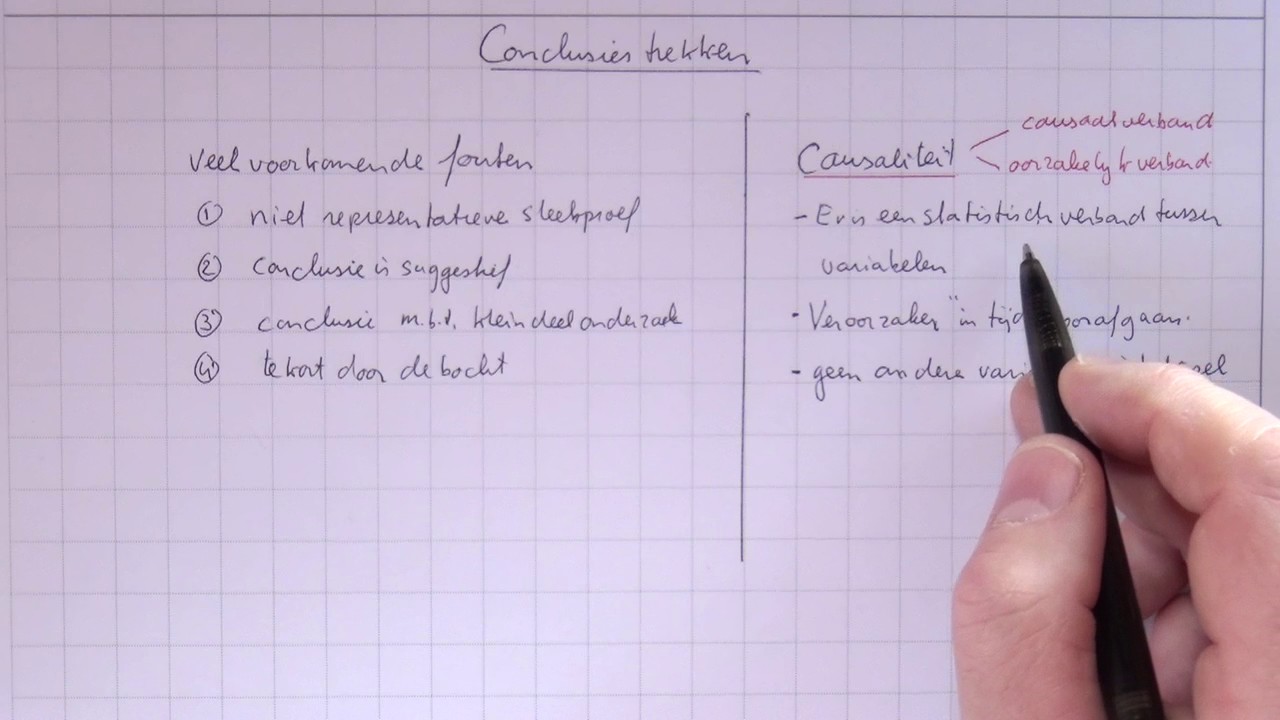 Conclusies trekken
veel voorkomende fouten
① niet representatieve steekproef
② conclusie is suggestief
③ conclusie m.b.t. klein deel onderzoek
④ te kort door de bocht
Causaliteit
causaal verband
oorzakelijk verband
- Er is een statistisch verband tussen
variabelen
- Veroorzaker "in tijd
- geen andere